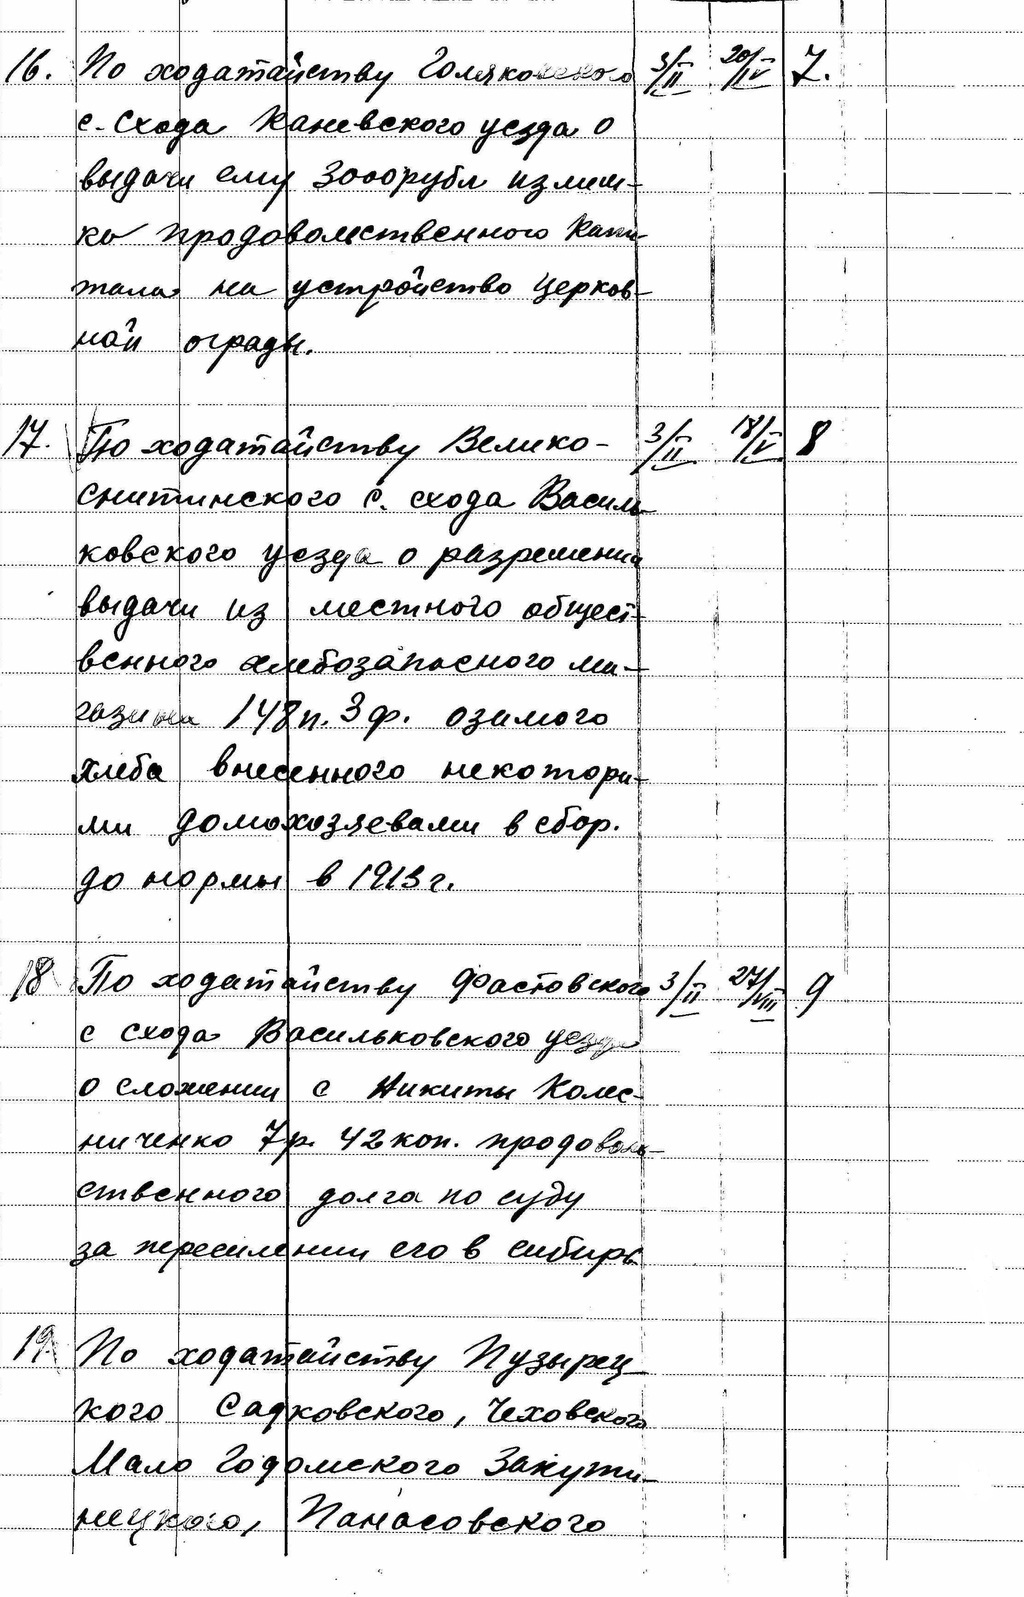 16. По ходатайству Голяковского 3/II 20/IV 7.
с. Схода Каневского уезда о
выдачи ему 3000рубл излиш-
ка продовольственного Капи-
тала на устройство Церков-
най ограды.
17. По ходатайству Велико- 3/II 18/V 8
снитинского с. схода Василь-
ковского уезда о разрешении
выдачи из местного общест-
венного хлебозапасного ма-
газина 148п. 3ф. озимого
хлеба внесенного некотори-
ми домохозяевами в сбор.
до нормы в 1913г.
18 По ходатайству Фастовского 3/II 27/VIII 9
с схода Васильковского уезда
о сложении с Никиты Колес-
ниченко 7р. 42 коп. продоволь-
ственного долга по суду
за переселении его в сибирь
19. По ходатайству Пузырец
кого Садковского, Чеховского
Мало Годомского Закути-
нецкого, Панасовского